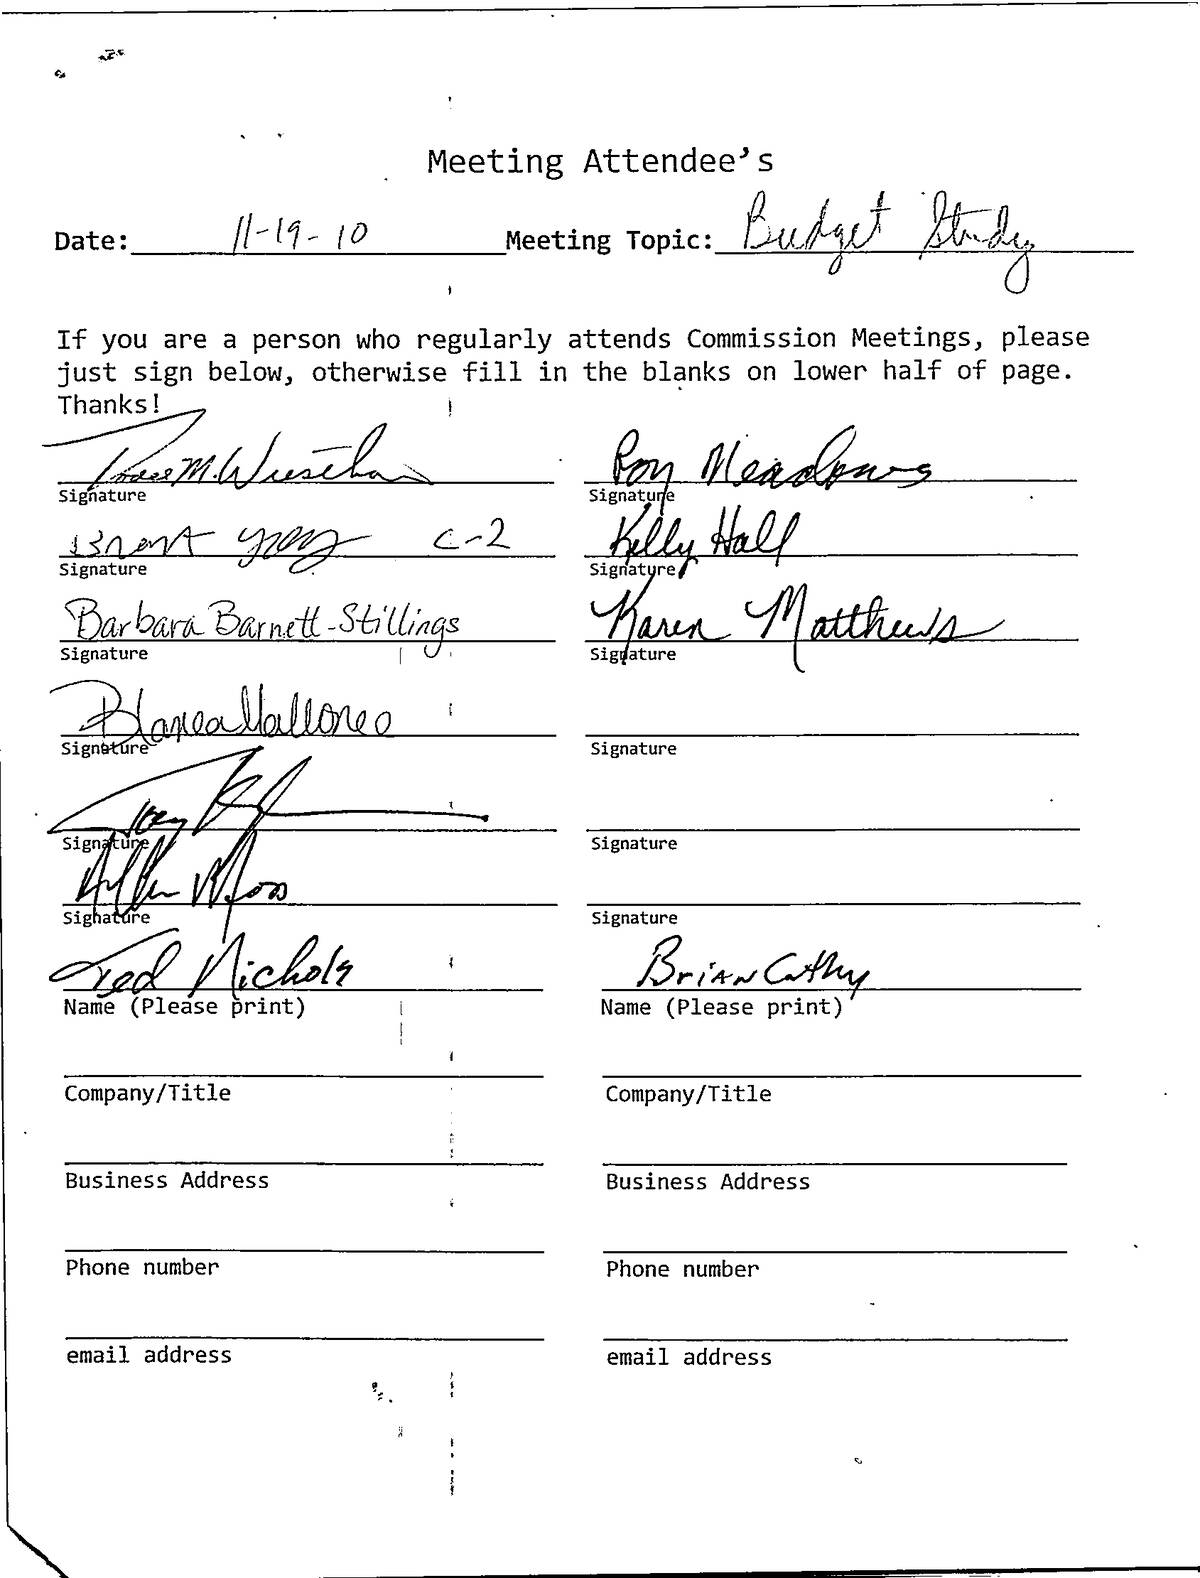 Meeting Attendee's
Date: 11-19-10 Meeting Topic: Budget Study
If you are a person who regularly attends Commission Meetings, please
just sign below, otherwise fill in the blanks on lower half of page.
Thanks!
Roy Meadows
Signature Signature
Brent C-2 Kelly Hall
Signature Signature
Barbara Barnett-Stillings Karen Matthews
Signature Signature
Blanca
Signature Signature
Signature Signature
Allen Moss
Signature Signature
Ted Nichols Brian Cathy
Name (Please print) Name (Please print)
Company/Title Company/Title
Business Address Business Address
Phone number Phone number
email address email address